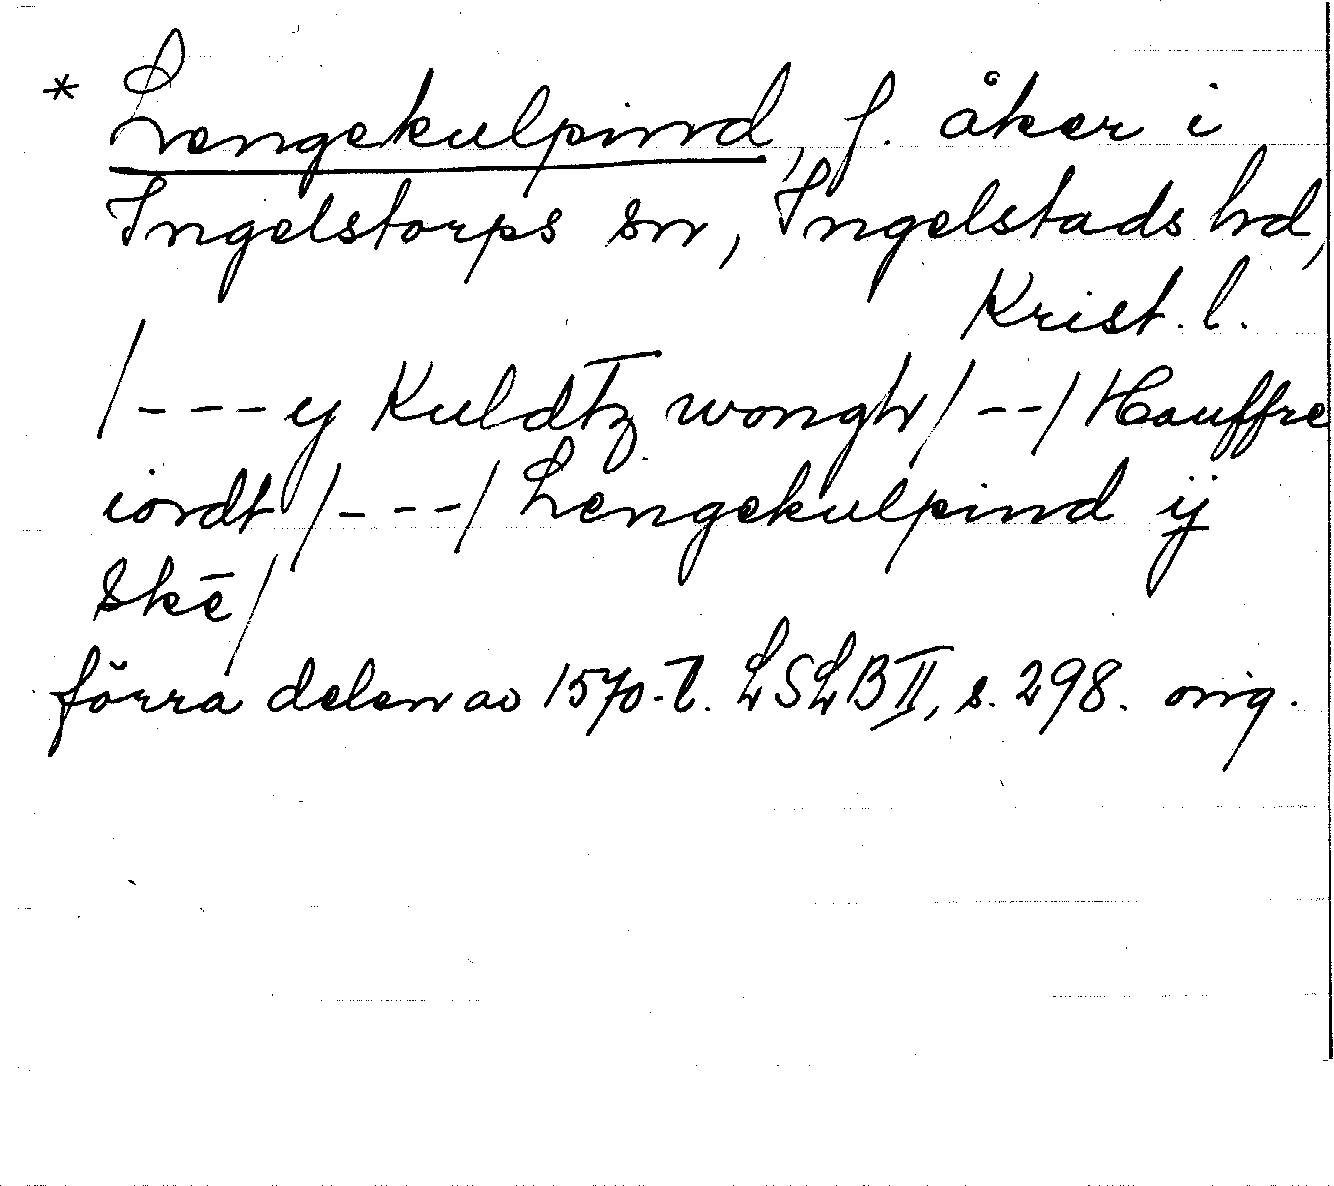 * Lengekulpind, f. åker i
Ingelstorps sn, Ingelstads hd,
Krist. l.
/---y Kuldtz wongh/--/Hauffre
iordt/---/Lengekulpind ij
Skē/
förra delen av 1570-t. LSLB II, s. 298. orig.